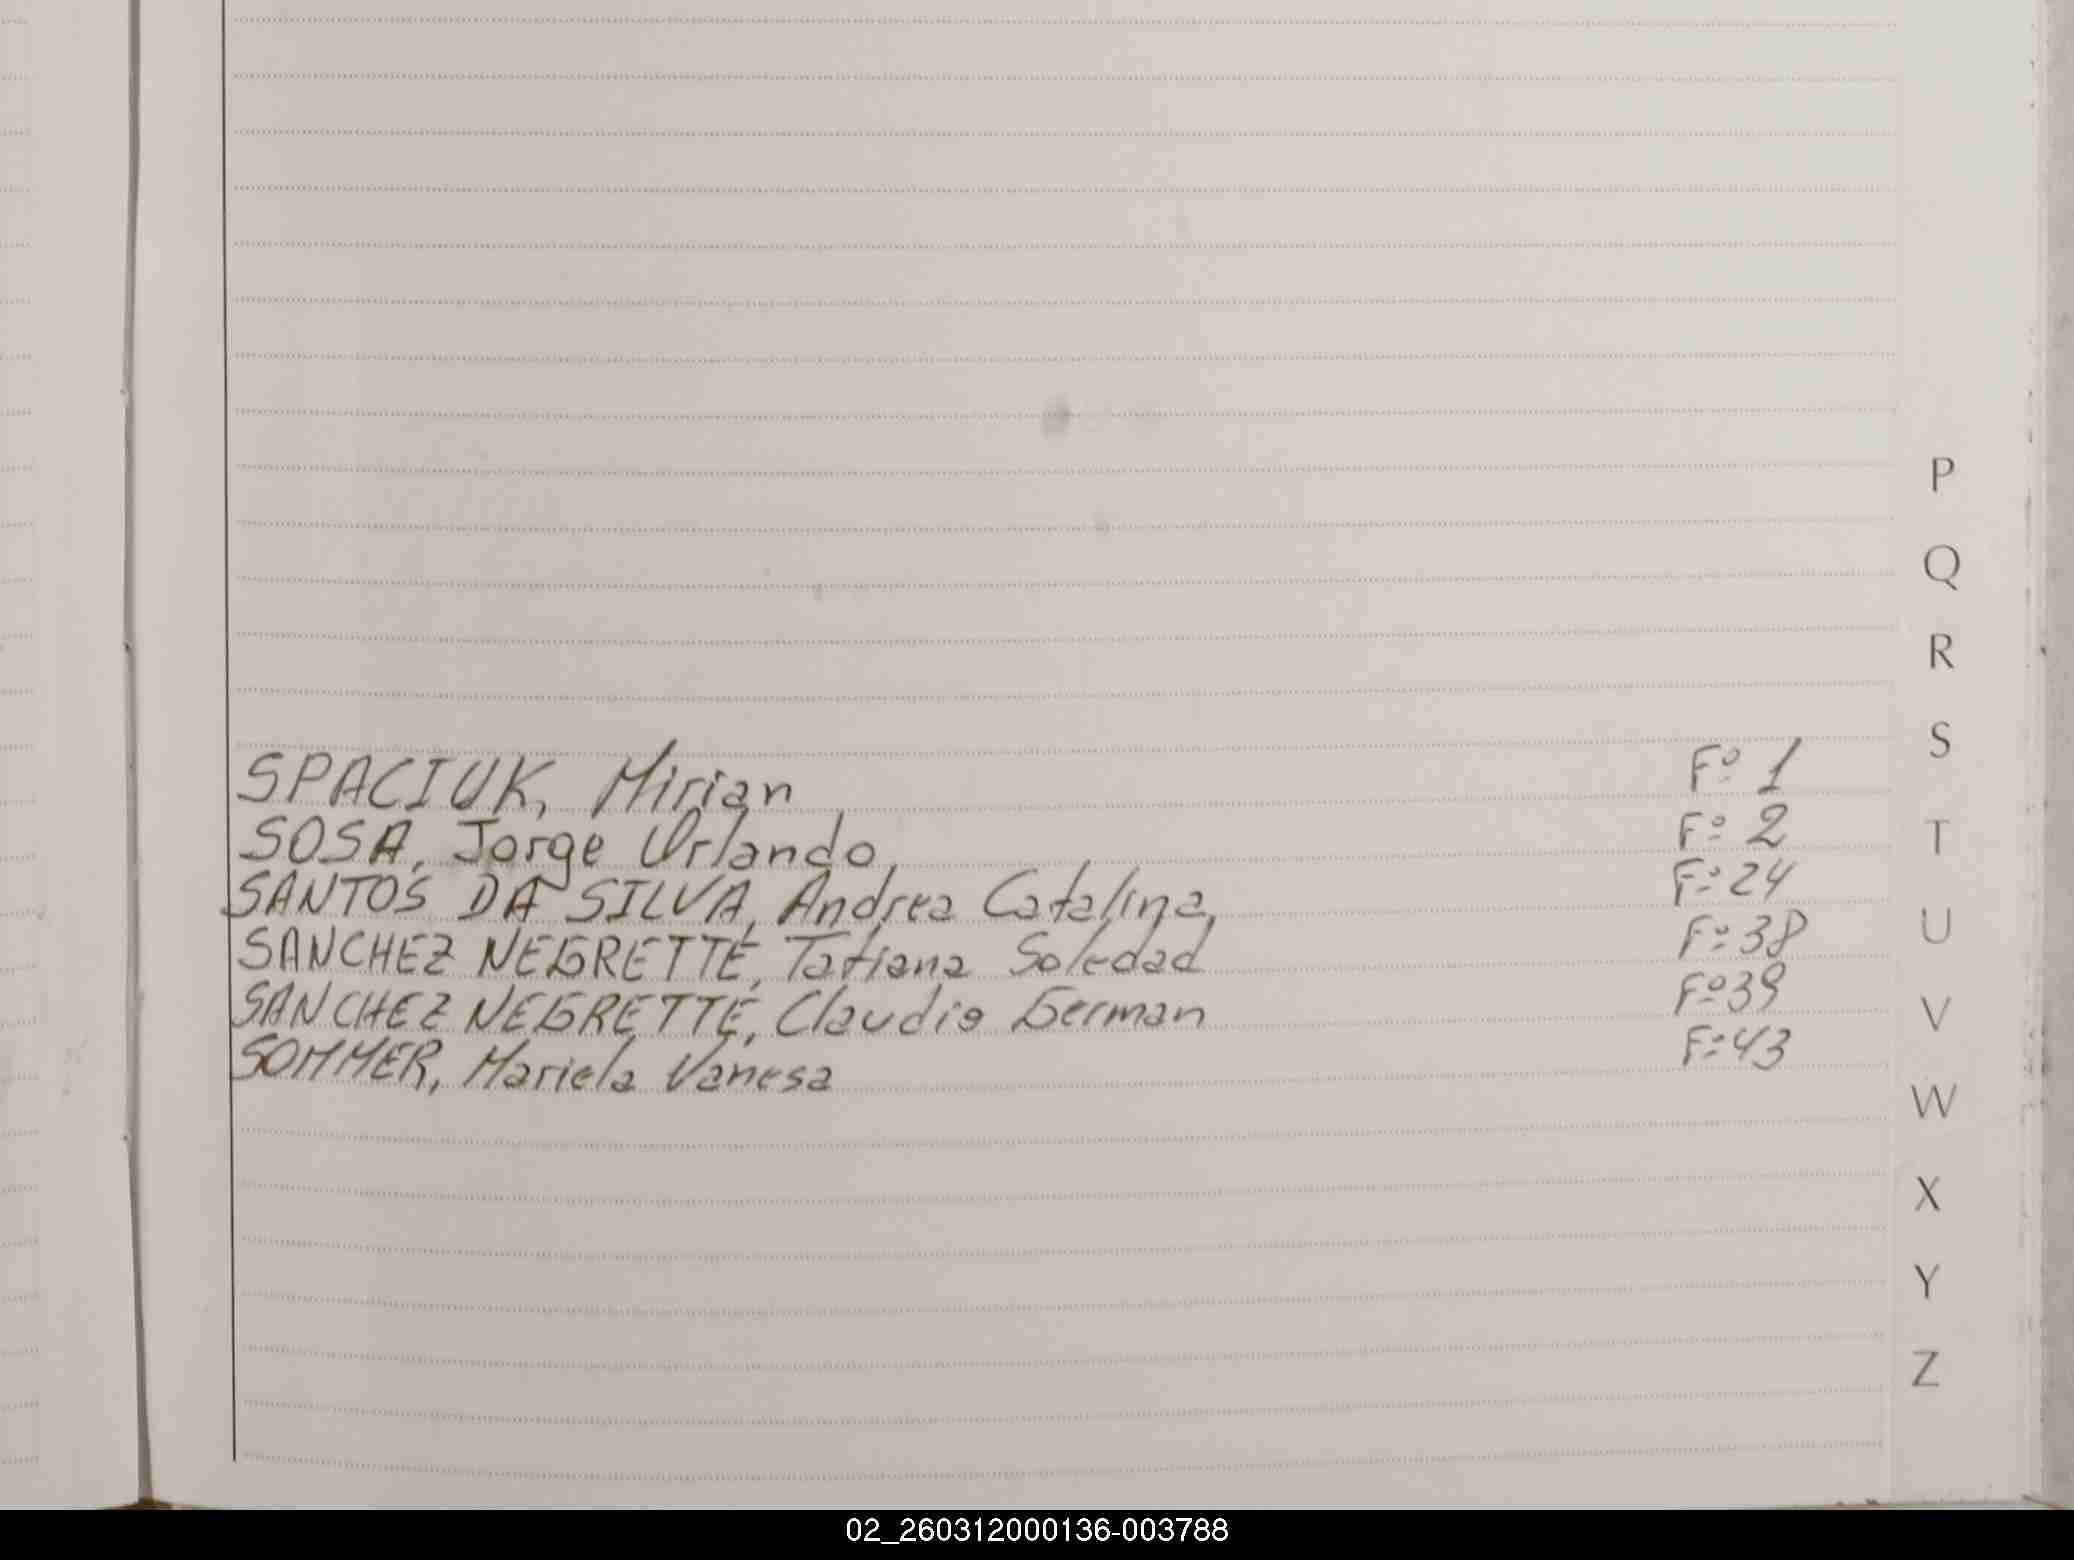 SPACIUK, Mirian Fº 1
SOSA, Jorge Orlando Fº 2
SANTOS DA SILVA, Andrea Catalina Fº 24
SANCHEZ NEGRETTE, Tatiana Soledad Fº 38
SANCHEZ NEGRETTE, Claudio German Fº 39
SOMMER, Mariela Vanesa Fº 43
P
Q
R
S
T
U
V
W
X
Y
Z
02_260312000136-003788